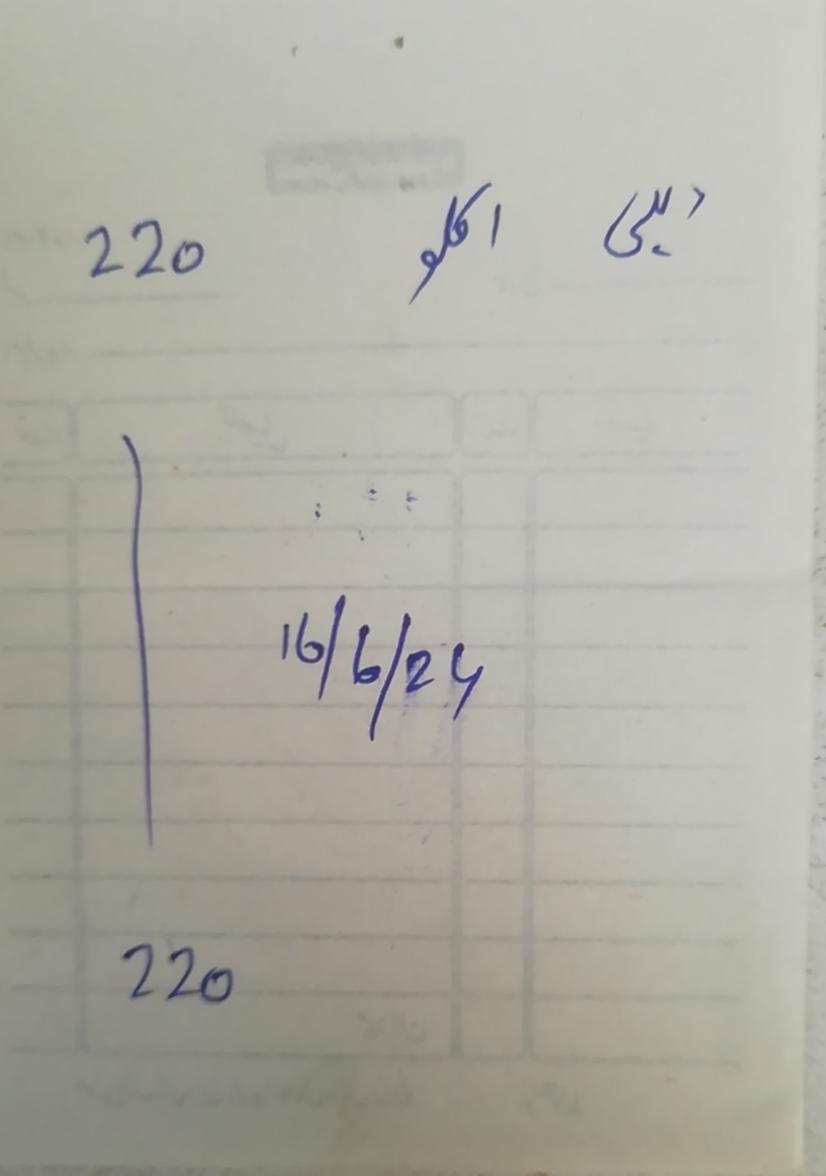 دہی ۱ کلو 220
16/6/24
220